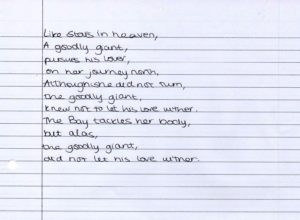 Like stars in heaven,
A goodly giant,
pursues his lover,
on her journey north,
Although she did not turn,
the goodly giant,
knew not to let his love wither.
The Bay tackles her body,
but alas,
the goodly giant,
did not let his love wither.